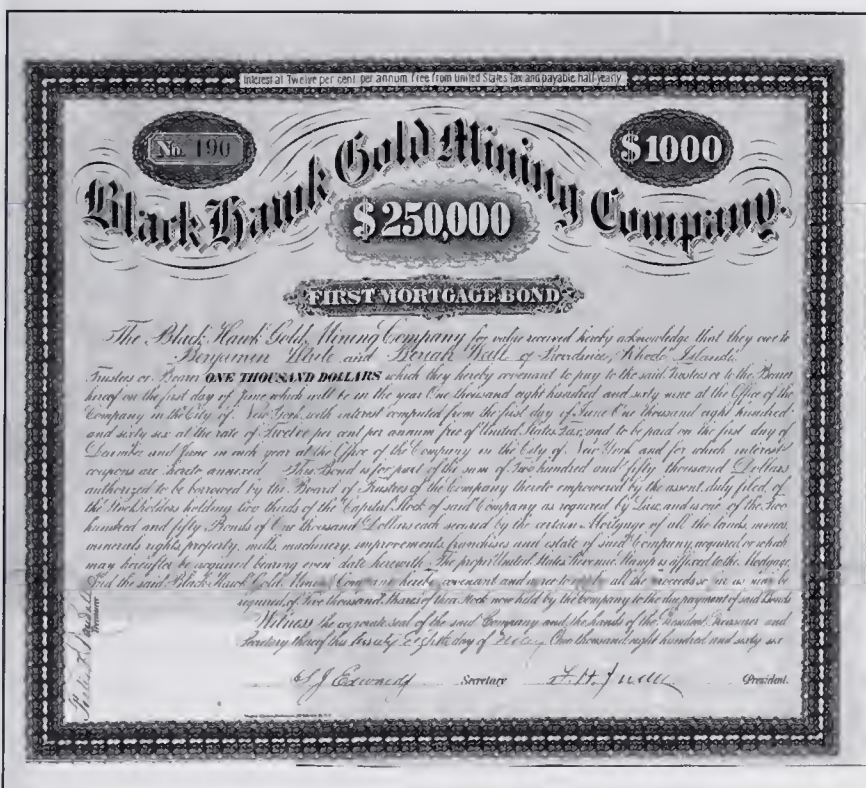 Interest at Twelve per cent per annum free from United States Tax and payable half yearly
No. 190
$1000
Black Hawk Gold Mining Company.
$250,000
FIRST MORTGAGE BOND
The Black Hawk Gold Mining Company for value received hereby acknowledge that they owe to
Benjamin White and Beriah Wall of Providence, Rhode Island
Trustees or Bearer ONE THOUSAND DOLLARS which they hereby covenant to pay to the said Trustees or to the Bearer
hereof on the first day of June which will be in the year One thousand eight hundred and sixty nine at the Office of the
Company in the City of New York with interest computed from the first day of June One thousand eight hundred
and sixty six at the rate of Twelve per cent per annum free of United States Tax, and to be paid on the first day of
December and June in each year at the Office of the Company in the City of New York and for which interest
coupons are hereto annexed This Bond is for part of the sum of Two hundred and fifty thousand Dollars
authorized to be borrowed by the Board of Trustees of the Company thereto empowered by the assent, duly filed, of
the Stockholders holding two thirds of the Capital Stock of said Company as required by Law, and is one of the Two
hundred and fifty Bonds of One thousand Dollars each secured by the certain Mortgage of all the lands, mines,
minerals rights, property, mills, machinery, improvements, franchises and estate of said Company, acquired or which
may hereafter be acquired bearing even date herewith. The proper United States Revenue Stamp is affixed to the Mortgage.
And the said Black Hawk Gold Mining Company hereby covenant and agree to apply all the proceeds so far as may be
required, of Five thousand Shares of their Stock now held by the company to the due payment of said Bonds
Witness the corporate seal of the said Company and the hands of the President Treasurer and
Secretary thereof this twenty eighth day of May One thousand eight hundred and sixty six
S J Edwards Secretary F. H. Judd President.
Treasurer